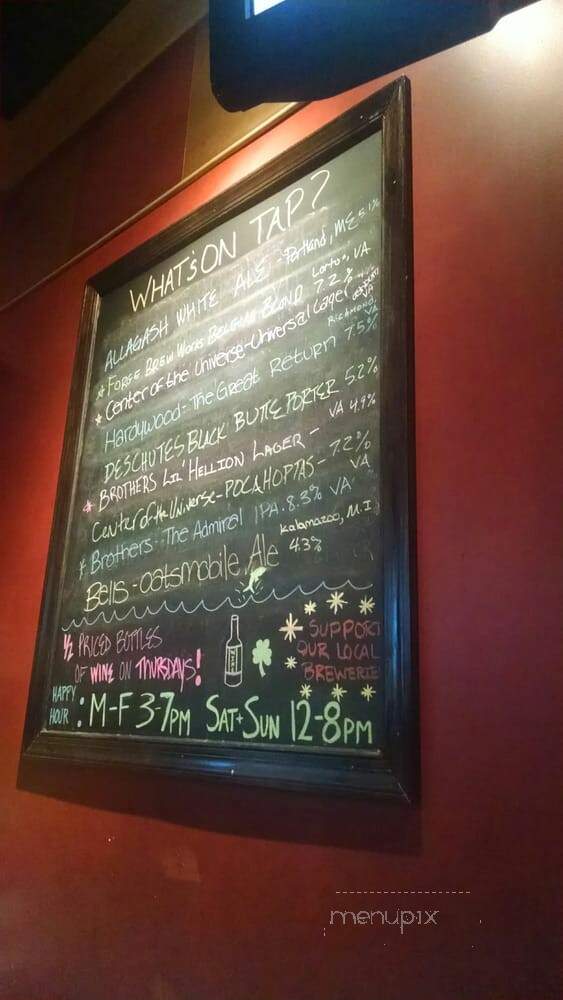 WHAT'S ON TAP?
ALLAGASH WHITE ALE - Portland, ME 5.1%
FORGE BREW WORKS BELGIAN BLOND 7.2% VA
Center of the Universe-Universal Lager
Hardywood-The Great Return 7.5% RICHMOND, VA
DESCHUTES BLACK BUTTE PORTER 5.2%
BROTHERS LIL' HELLION LAGER - VA 4.9%
Center of the Universe-POCAHOPTAS- 7.2% VA
Brothers-The Admiral IPA. 8.3% VA
Bells-oatsmobile Ale 4.3% Kalamazoo, M.I
1/2 PRICED BOTTLES
OF WINE ON THURSDAYS!
SUPPORT
OUR LOCAL
BREWERIE
HAPPY
HOUR : M-F 3-7PM SAT+SUN 12-8PM
menupix